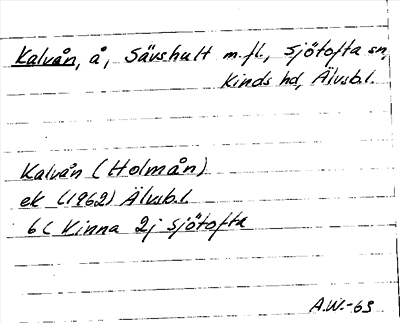 Kalvån, å, Sävshult m.fl., Sjötofta sn,
Kinds hd, Älvsb.l.
Kalvån (Holmån)
ek (1962) Älvsb.l.
6C Kinna 2j Sjötofta
A.W.-63